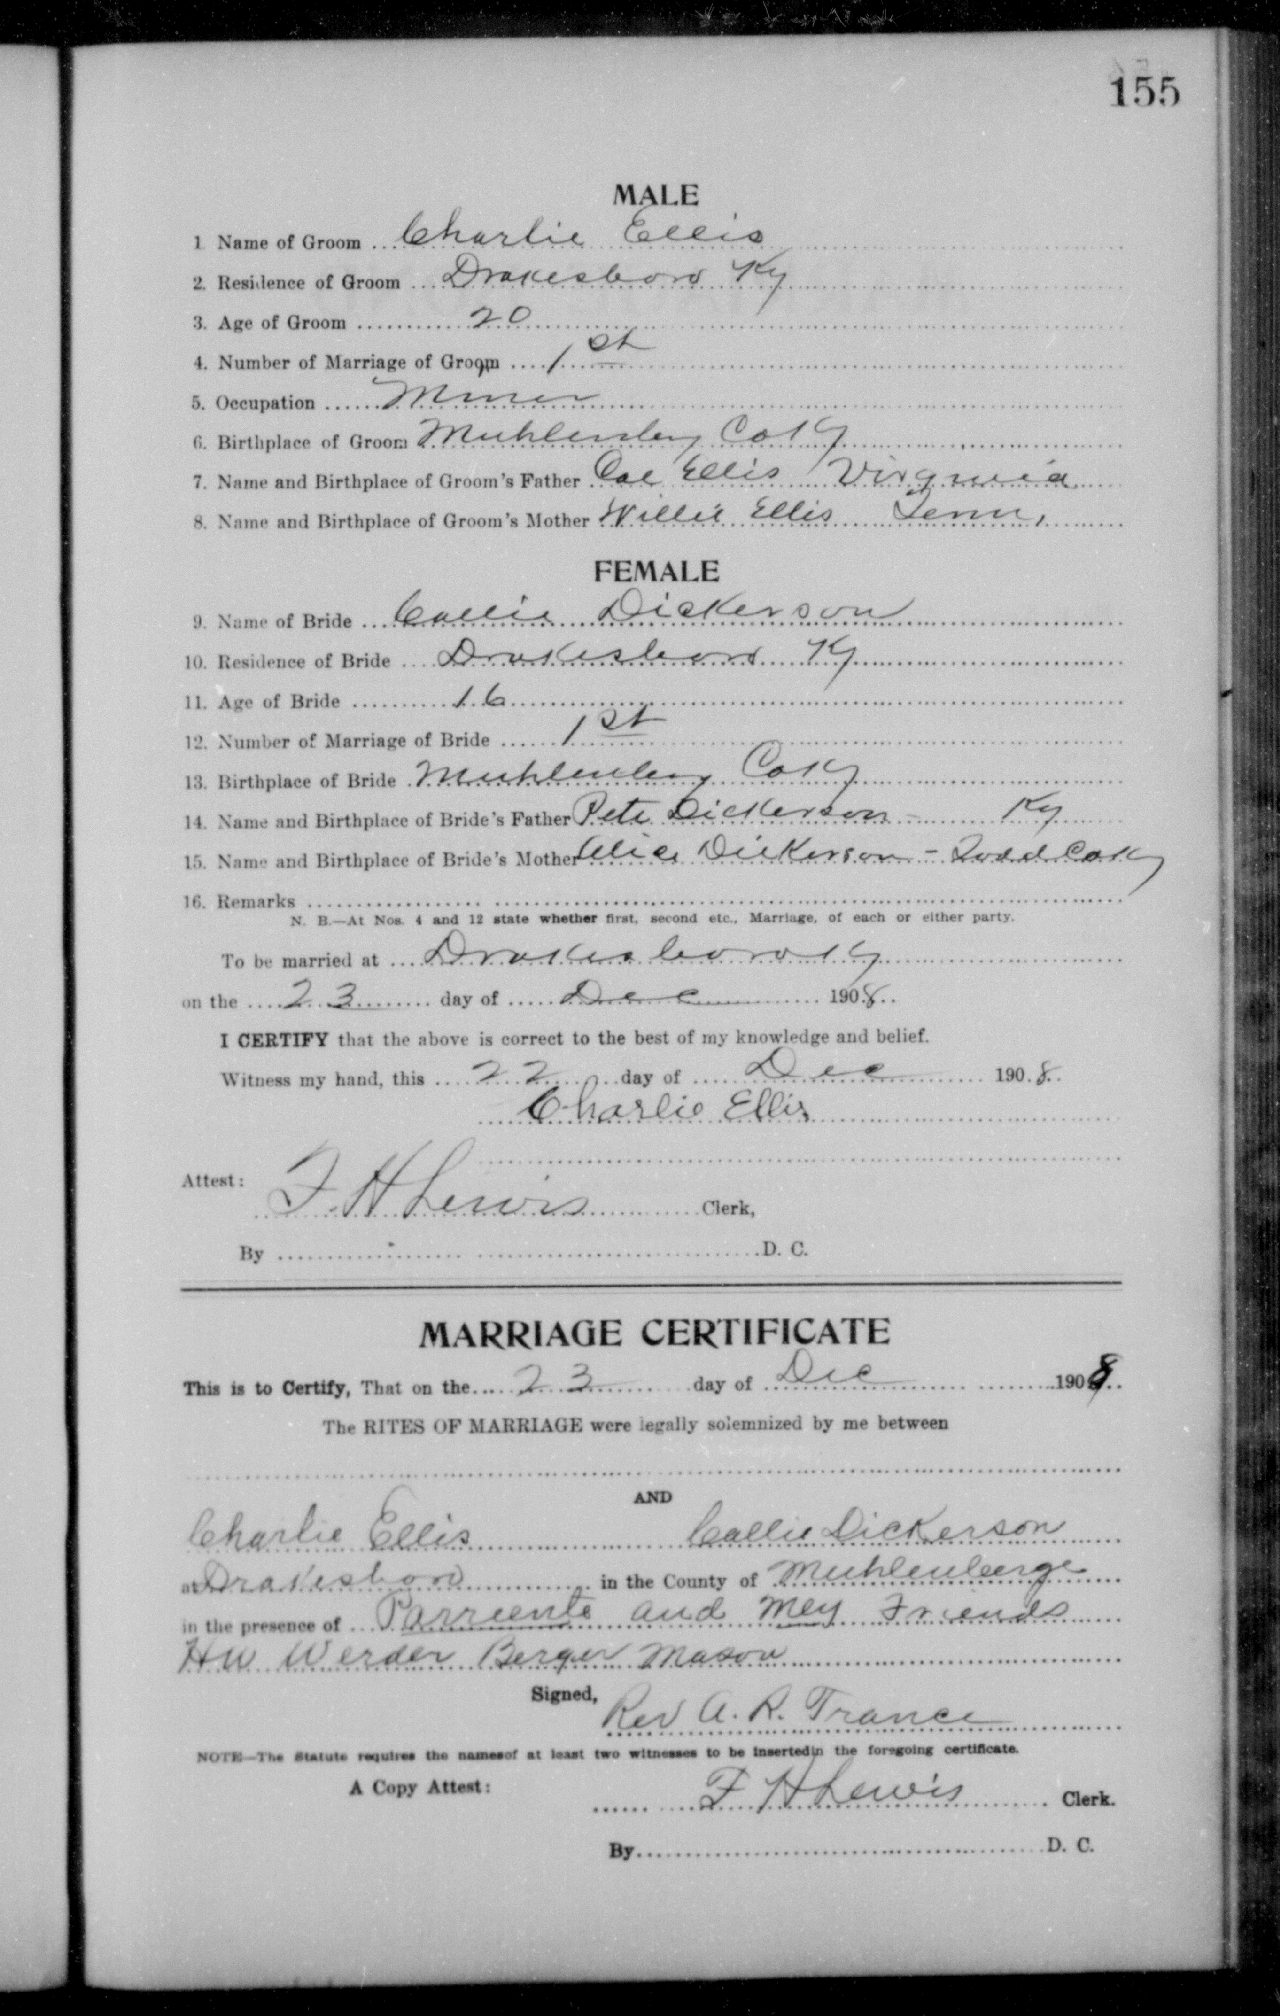 155
MALE
1 Name of Groom Charlie Ellis
2. Residence of Groom Drakesboro Ky
3. Age of Groom 20
4. Number of Marriage of Groom 1st
5. Occupation Miner
6. Birthplace of Groom Muhlenberg Co Ky
7. Name and Birthplace of Groom's Father Ellis Virginia
8. Name and Birthplace of Groom's Mother Willie Ellis Tenn.
FEMALE
9. Name of Bride Callie Dickerson
10. Residence of Bride Drakesboro Ky
11. Age of Bride 16
12. Number of Marriage of Bride 1st
13. Birthplace of Bride Muhlenberg Co Ky
14. Name and Birthplace of Bride's Father Pete Dickerson - Ky
15. Name and Birthplace of Bride's Mother Alice Dickerson - Todd Co Ky
16. Remarks
N. B.—At Nos. 4 and 12 state whether first, second etc., Marriage, of each or either party.
To be married at Drakesboro Ky
on the 23 day of Dec 1908
I CERTIFY that the above is correct to the best of my knowledge and belief.
Witness my hand, this 22 day of Dec 1908
Charlie Ellis
Attest: F. H Lewis Clerk,
By D. C.
MARRIAGE CERTIFICATE
This is to Certify, That on the 23 day of Dec 1908
The RITES OF MARRIAGE were legally solemnized by me between
AND
Charlie Ellis Callie Dickerson
at Drakesboro in the County of Muhlenberge
in the presence of Parriente and Mey Friends
H W Werder Berger Mason
Signed, Rev A. R. France
NOTE—The Statute requires the namesof at least two witnesses to be insertedin the foregoing certificate.
A Copy Attest: F H Lewis Clerk.
By D. C.